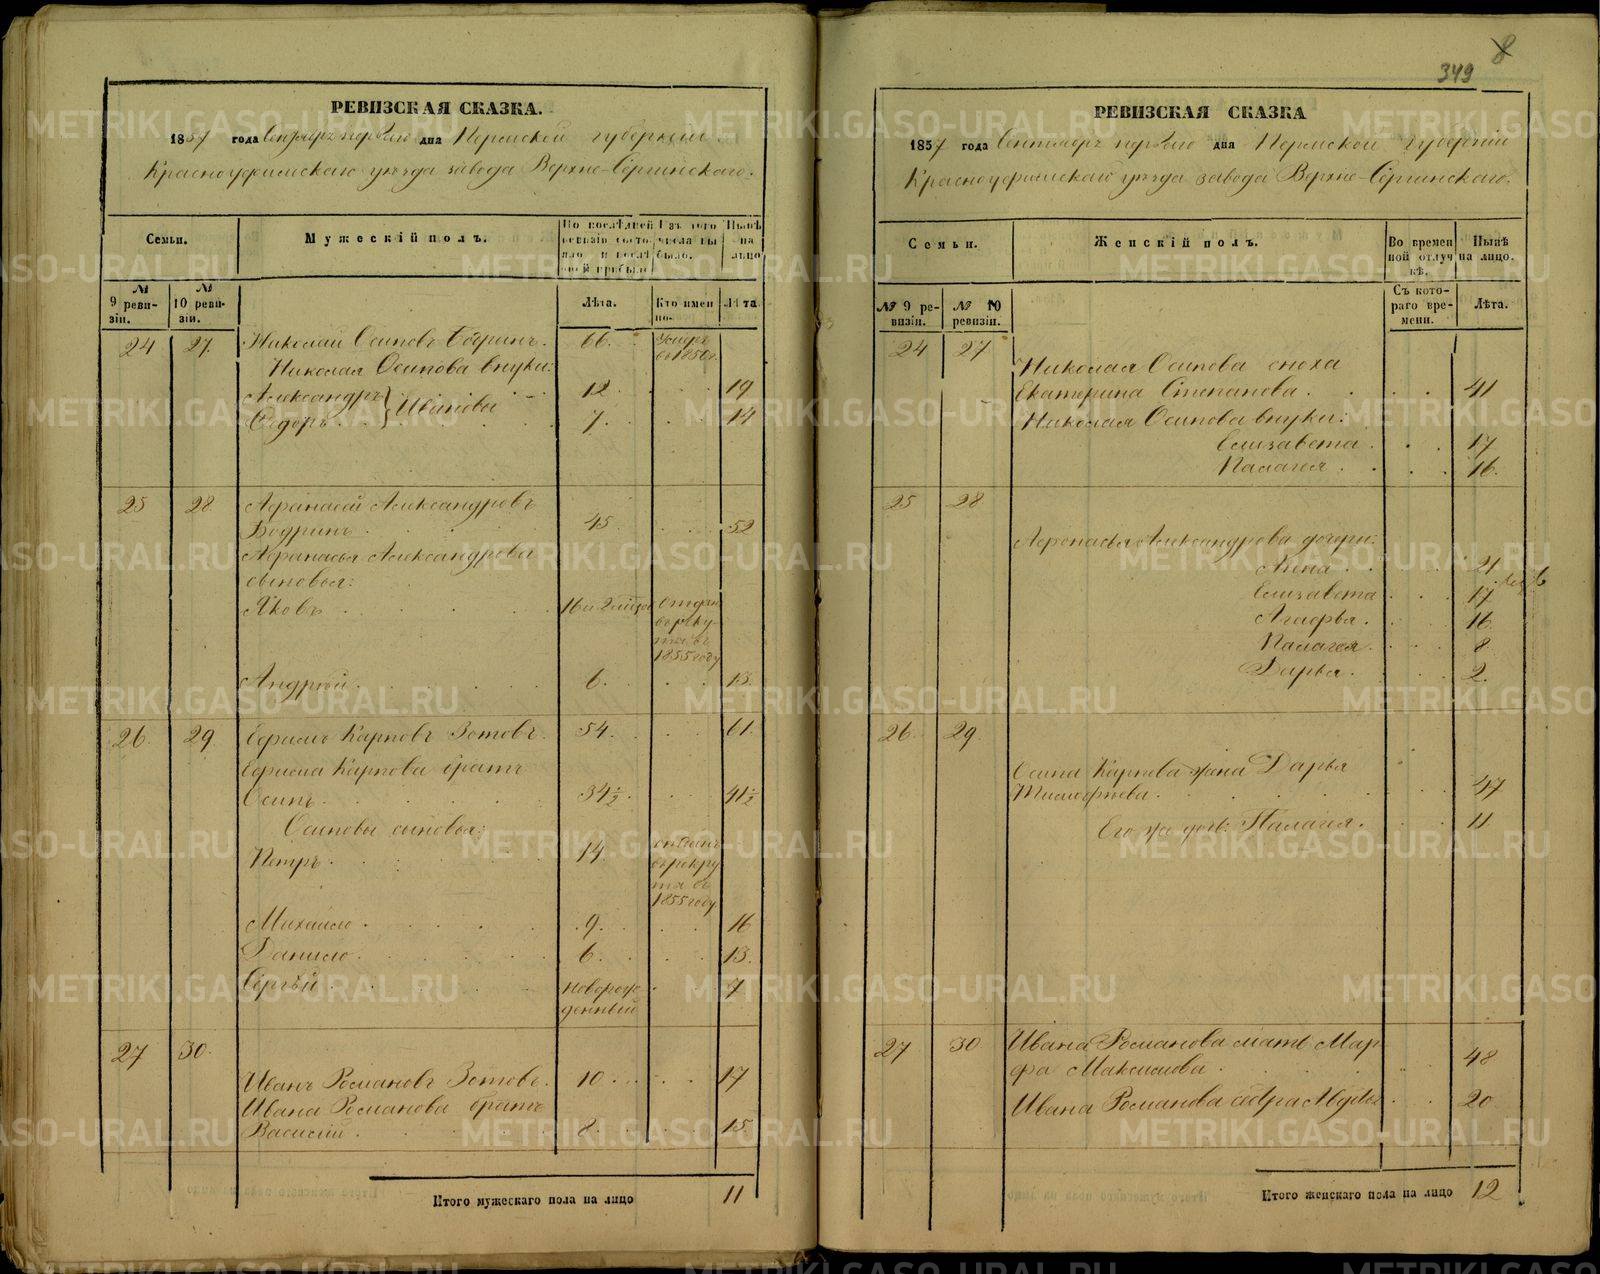 РЕВИЗСКАЯ СКАЗКА.
1857 года Сентября перваго дня Пермской губернии
Красноуфимскаго уезда завода Верхне-Сергинскаго.
Семьи.
Мужескiй полъ.
По последней ревизiи состояло и после оной прибыло
Изъ того числа выбыло.
Ныне на лицо
№ 9 ревизiи.
№ 10 ревизiи.
Лета.
Кто именно.
Лета.
24 27. Николай Осиповъ Бодринъ. 66. Умеръ въ 1850 г.
Николая Осипова внуки:
Александръ 12 19
Ивановы
Федоръ 7. 14
25 28 Афанасей Александровъ
Бодринъ. 45. 52
Афанасья Александрова
сыновья:
Яковъ 16 и 2 месяца Отданъ въ рекруты въ 1855 году
Андрей 6. 13.
26. 29. Ефимъ Карповъ Зотовъ. 54. 61.
Ефима Карпова братъ
Осипъ. 34½. 41½
Осиповы сыновья:
Петръ. 14. отданъ въ рекруты въ 1855 году
Михайло 9. 16
Данило. 6. 13.
Сергей новорожденный 7
27 30.
Иванъ Романовъ Зотовъ. 10. 17
Ивана Романова братъ
Василий 8. 15.
Итого мужескаго пола на лицо 11
8
349
РЕВИЗСКАЯ СКАЗКА
1857 года Сентября перваго дня Пермской Губернiи
Красноуфимскаго уезда завода Верхне-Сергинскаго.
Семьи.
Женскiй полъ.
Во временной отлучкѣ.
Нынѣ на лицо.
№ 9 ревизiи.
№ 10 ревизiи.
Съ котораго времени.
Лѣта.
24 27
Николая Осипова сноха
Екатерина Степанова. 41
Николая Осипова внуки:
Елизавета 17
Палагея 16.
25 28
Афанасья Александрова дочери:
Анна 21
Елизавета 17
Агафья. 16.
Палагея 8
Дарья. 2.
26. 29.
Осипа Карпова жена Дарья
Тимофеева. 47
Его же дочь: Палагея. 11
27 30 Ивана Романова мать Мар-
фа Максимова. 48
Ивана Романова сестра Авдотья 20
Итого женскаго пола на лицо 12
METRIKI.GASO-URAL.RU